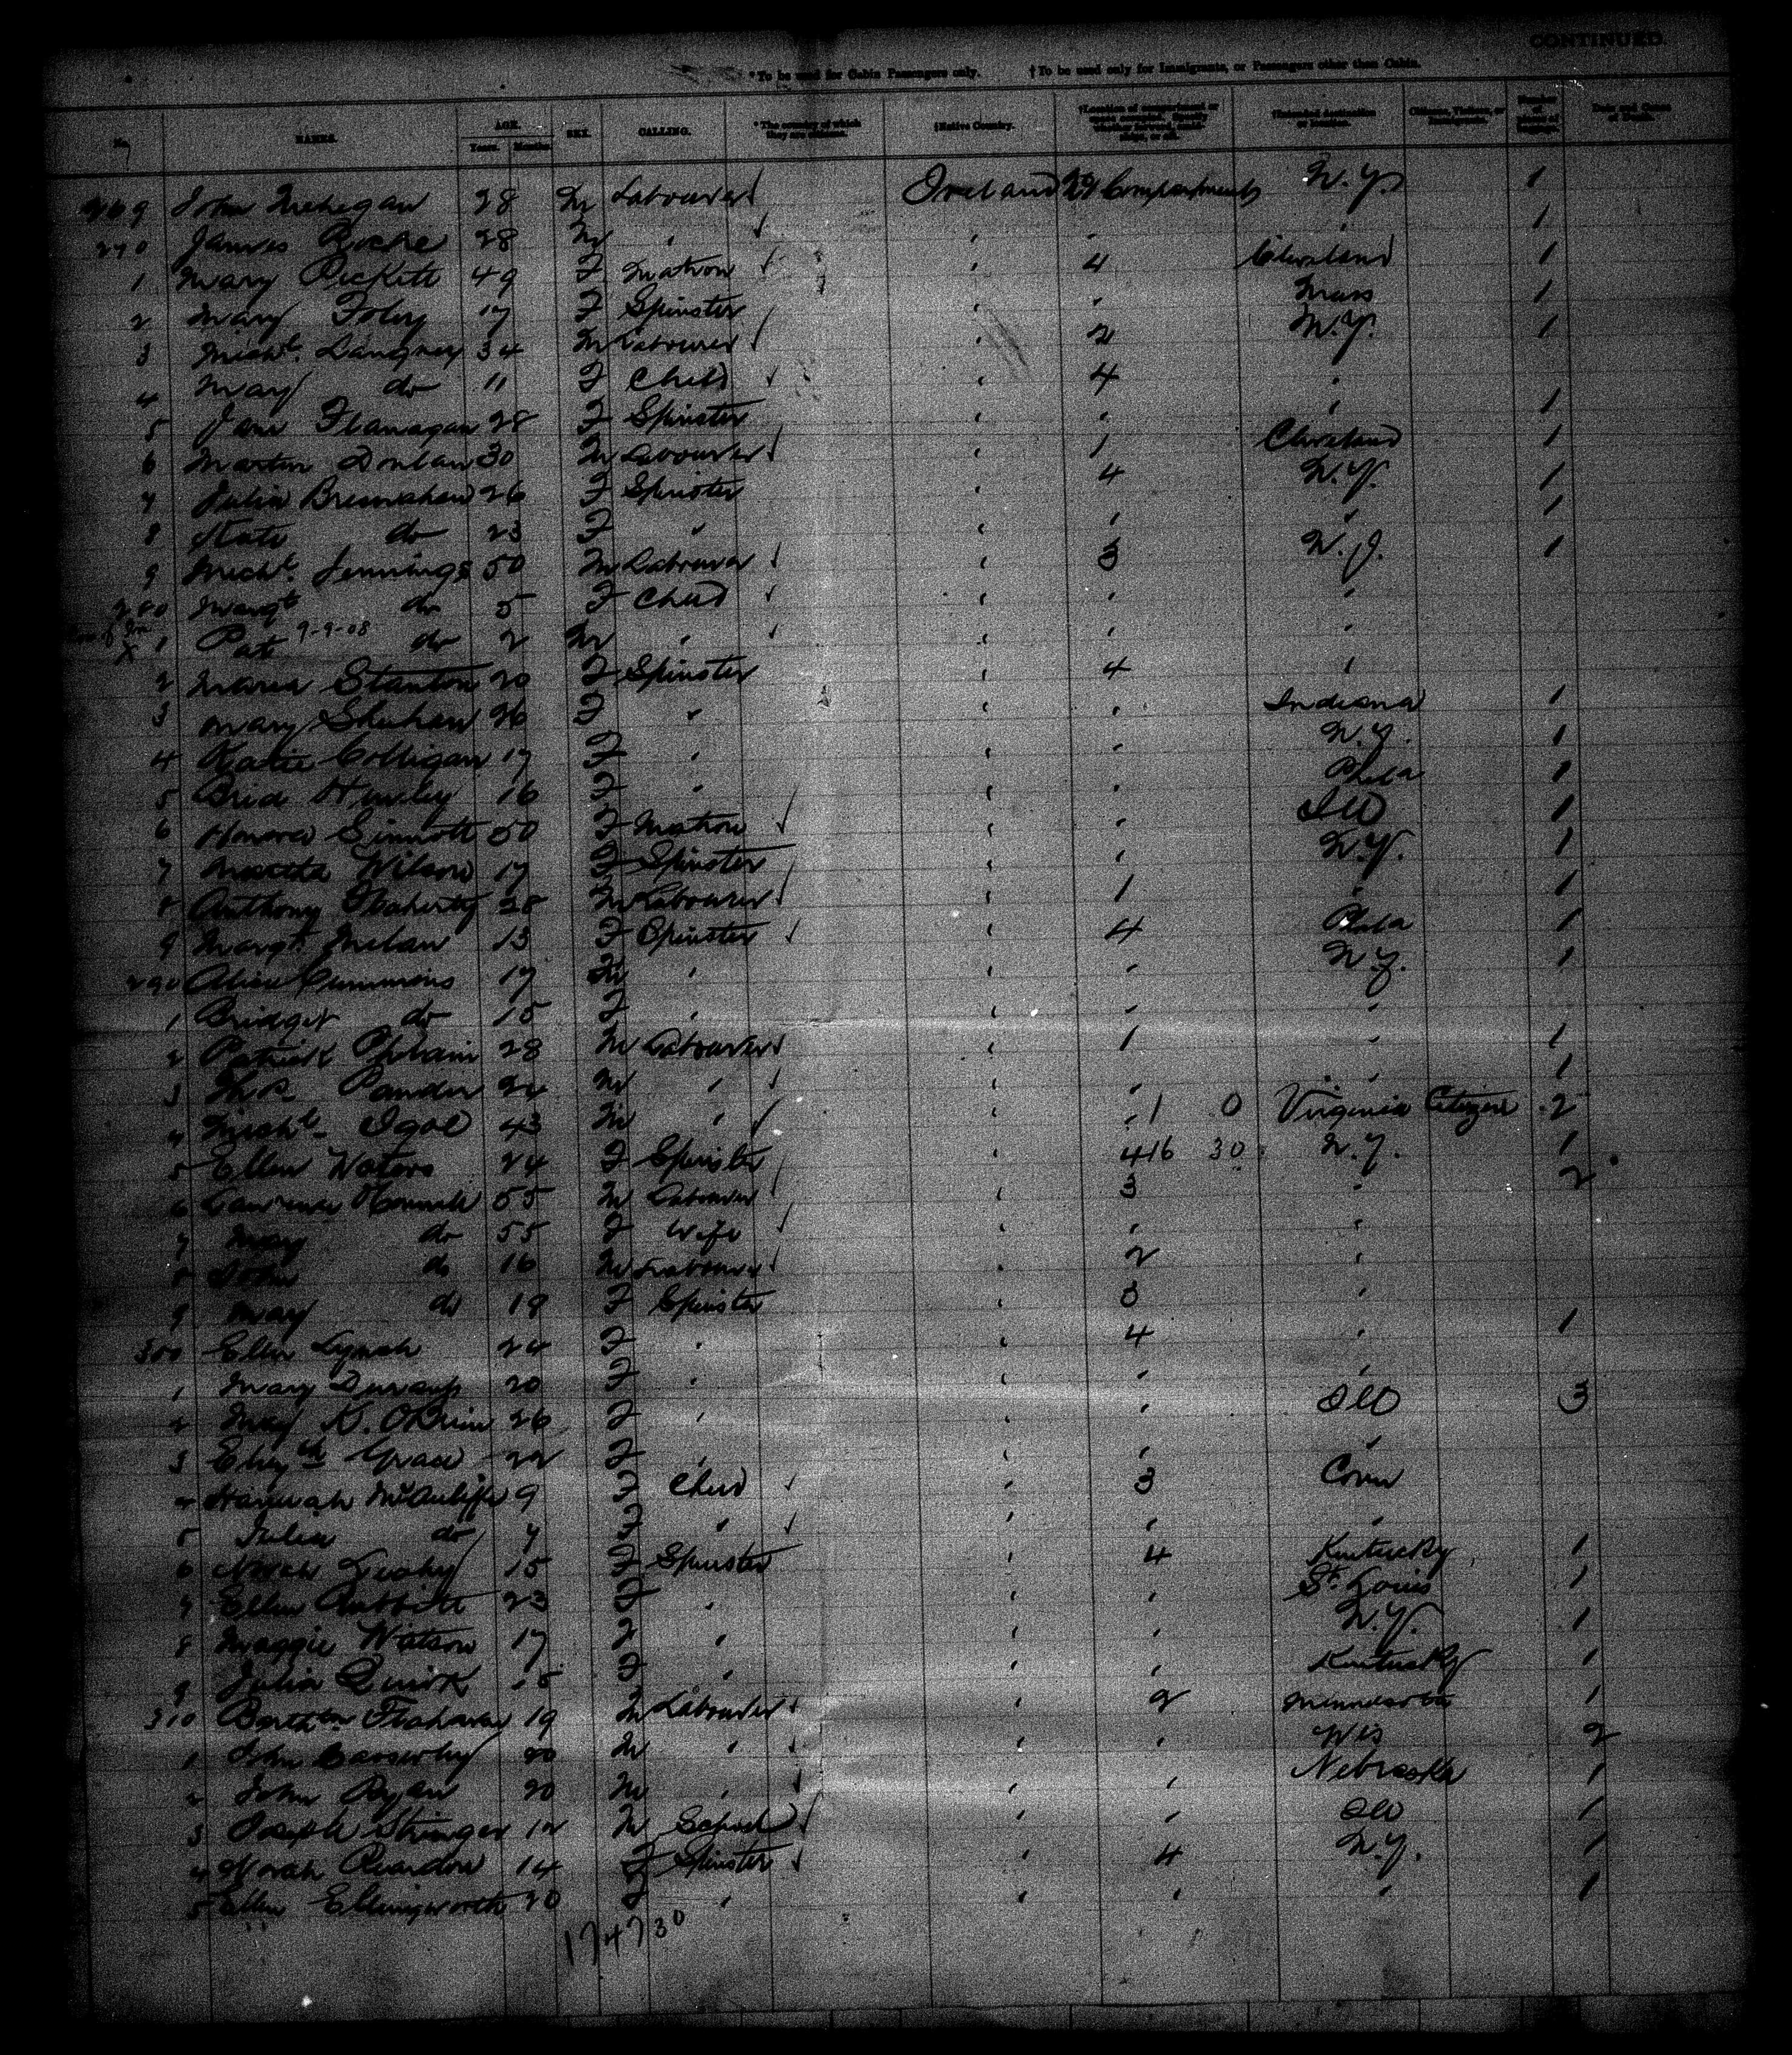 CONTINUED.
* To be used for Cabin Passengers only. † To be used only for Immigrants, or Passengers other than Cabin.
No. NAMES. AGE. Years. Months. SEX. CALLING. * The country of which they are citizens. † Native Country. † Location of compartment or Intended destination or location. Citizens, Visitors, or Immigrants. Number of pieces of baggage. Date and Cause of Death.
269 John Mehegan 28 M Labourer Ireland 2 Compartment N.Y. 1
270 James Roche 28 M " " " " 1
1 Mary Pickett 49 F Matron " 4 Cleveland 1
2 Mary Foley 17 F Spinster " " Mass 1
3 Michl. 34 M Labourer " 2 N.Y. 1
4 Mary do 11 F Child " 4 "
5 Jane Flanagan 28 F Spinster " " " 1
6 Martin Donlan 30 M Labourer " 1 Cleveland 1
7 Julia Bresnahan 26 F Spinster " 4 N.Y. 1
8 Kate do 23 F " " " " 1
9 Michl. Jennings 50 M Labourer " 3 N.J. 1
280 Margt do 5 F Child " " "
1 Pat 9-9-08 do 2 M " " " "
2 Maria Stanton 20 F Spinster " 4 "
3 Mary Sheehan 26 F " " " Indiana 1
4 Katie Colligan 17 F " " " N.Y. 1
5 Brid Hurley 16 F " " " Phila 1
6 Honora Sinnott 50 F Matron " " Ill 1
7 Martha Wilson 17 F Spinster " " N.Y. 1
8 Anthony Flaherty 28 M Labourer " 1 " 1
9 Margt. 13 F Spinster " 4 Phila 1
290 Alice Cummins 17 " " " N.Y. 1
1 Bridget do 15 F " " " "
2 Patrick 28 M Labourer " 1 " 1
3 Thos 24 M " " " " 1
4 Michl. Igoe 43 M " " " 1 0 Virginia Citizen 2
5 Ellen Waters 24 F Spinster " 4 16 30 N.Y. 1
6 Lawrence 55 M Labourer " 3 " 2
7 Mary do 55 F Wife " " "
8 John do 16 M Labourer " 2 "
9 Mary do 18 F Spinster " 3 "
300 Ellen Lynch 24 F " " 4 " 1
1 Mary 20 F " " " "
2 Mary K. OBrien 26 F " " " Ill 3
3 Elizth Grace 22 F " " " "
4 Hannah McAuliffe 9 F Child " 3 Conn
5 Julia do 7 F " " " "
6 Norah 15 F Spinster " 4 Kentucky 1
7 Ellen 23 F " " " St. Louis 1
8 Maggie Watson 17 F " " " N.Y. 1
9 Julia Quirk 18 F " " " Kentucky 1
310 19 M Labourer " 2 Minnesota 1
1 John Casserley 20 M " " " Wis 2
2 John Ryan 20 M " " " Nebraska 1
3 Joseph Stringer 12 M " " Ill 1
4 Norah Reardon 14 F Spinster " 4 N.Y. 1
5 Ellen Ellingworth 20 F " " " " 1
174730